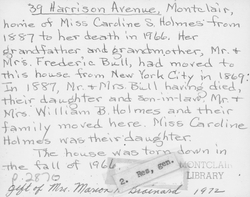 39 Harrison Avenue, Montclair,
home of Miss Caroline S. Holmes from
1887 to her death in 1966. Her
grandfather and grandmother, Mr. &
Mrs. Frederic Bull, had moved to
this house from New York City in 1869.
In 1887, Mr. & Mrs. Bull having died,
their daughter and son-in-law, Mr. &
Mrs. William B. Holmes and their
family moved here. Miss Caroline
Holmes was their daughter.
The house was torn down in
the fall of 1966.
2. Res, gen.
MONTCLAIR
LIBRARY
Gift of Mrs. Marion Brainard 1972